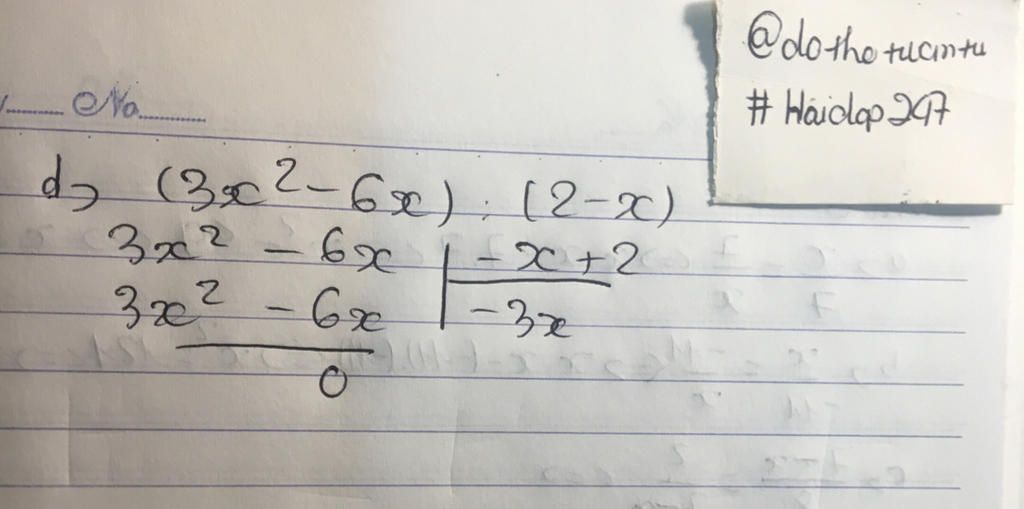 @dothetucmtu
# Hoidap247
No
d) (3x² - 6x) : (2 - x)
3x² - 6x | -x + 2
3x² - 6x | -3x
0